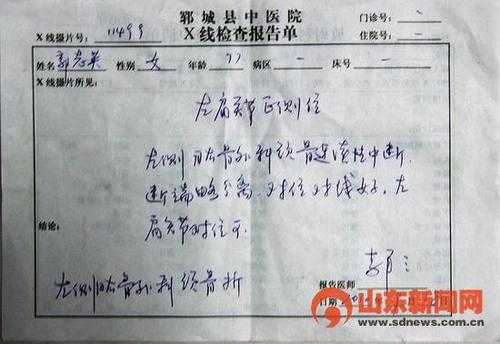 郓城县中医院
X线检查报告单
门诊号:-
住院号:-
X线摄片号: 11499
姓名 郭志英 性别 女 年龄 77 病区 - 床号 -
X线摄片所见:
左肩关节正侧位
左侧肱骨外科颈骨连续性中断.
断端略分离,对位对线好,左
肩关节对位可.
结论:
左侧肱骨外科颈骨折
报告医师
日期
山东新闻网
www.sdnews.com.cn